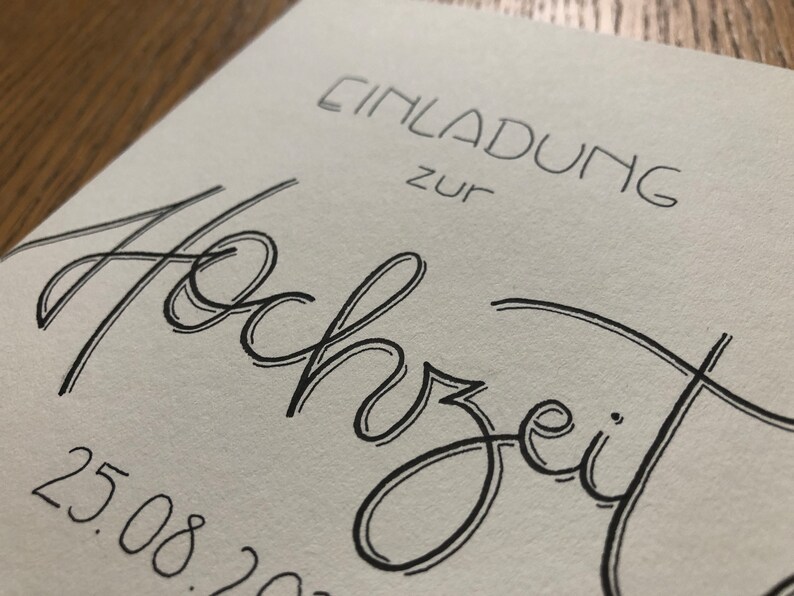 EINLADUNG
zur
Hochzeit
25.08.20